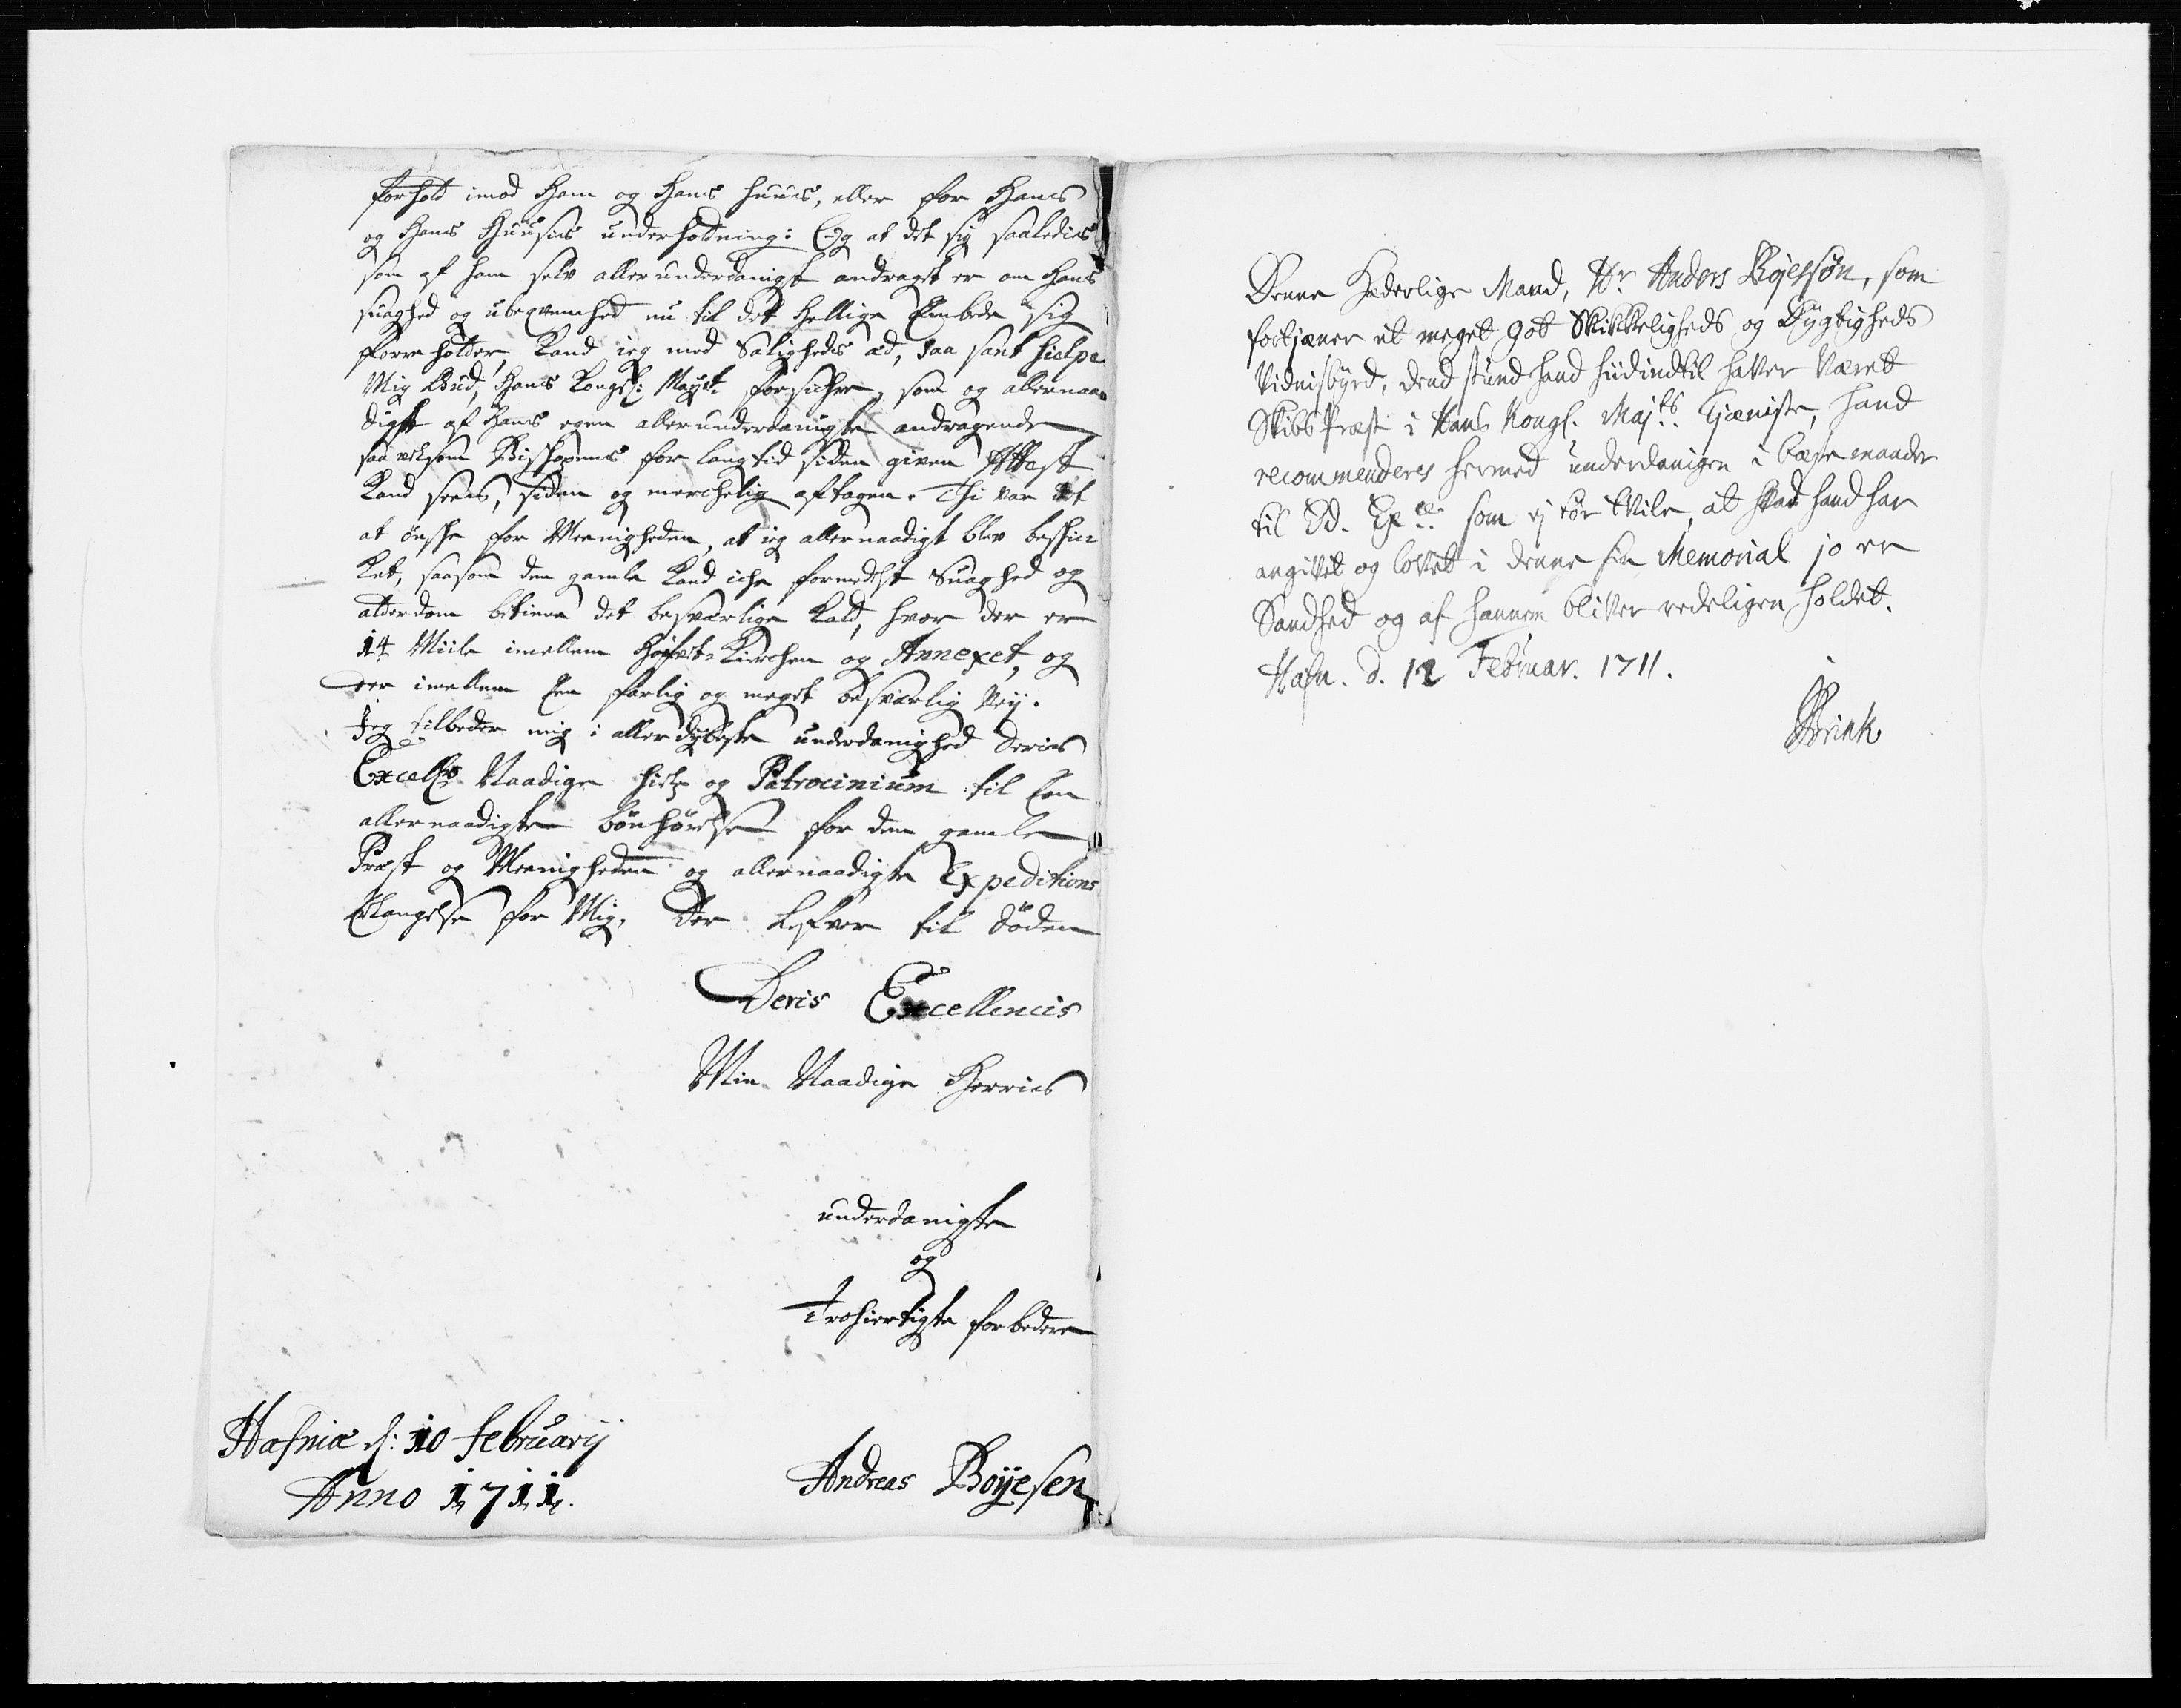 forhold imod Ham og Hans huus, eller for Hans
og Hans Huusis underholdning: Og at det sig saaledis
som af ham selv allerunderdanigst andraget er om Hans
suaghed og ubeqvemhed nu til det Hellige Embede sig
forre holder, Kand ieg med Saligheds æd, saa sant hielpe
Mig Gud, Hans Kongel: Mayst. forsichre, som og allernaa-
digst af Hans egen allerunderdanigste andragende
saa velsom Bisshopens for lang tid siden given Attest
Kand sees, siden og merchelig aftagen. Thi var det
at önshe for Meenigheden, at ieg allernaadigst blev beshic-
Ket, saasom den gamle Kand iche formedelst Suaghed og
alderdom betiene det besværlige Kald, hvor der er
14 Miile imellem Hofvet-Kirchen og Annexet, og
der imellem En farlig og meget besværlig Vey.
Jeg tilbeder mig i allerdybeste underdanighed Deris
Excell: Naadige hielp og Patrocinium til Een
allernaadigste bönhörelse for den gamle
Præst og Meenigheden og allernaadigste Expeditions
Erlangelse for Mig, Der Lefver til Döden
Deris Excellencis
Min Naadige Herris
underdanigste
og
Trohiertigste forbedere
Hafniæ d: 10 februarij
Anno 1711.
Andreas Boÿesen
Denne Hæderlige Mand, Hr Anders Bojessøn, som
fortjæner et meget got Skikkeligheds og Dygtigheds
Vidnisbyrd, dend stund hand hiidindtil haver været
Skibs Præst i Hans Kongl. Majts. Tjæniste, hand
recommenderes hermed underdanigen i bæste maader
til Ed. Exce. som ej tør tvile, at hvad hand har
angivet og lovet i denne sin Memorial jo er
Sandhed og af hannem bliver redeligen holdet.
Hafn. d. 12 Februar. 1711.
Brink